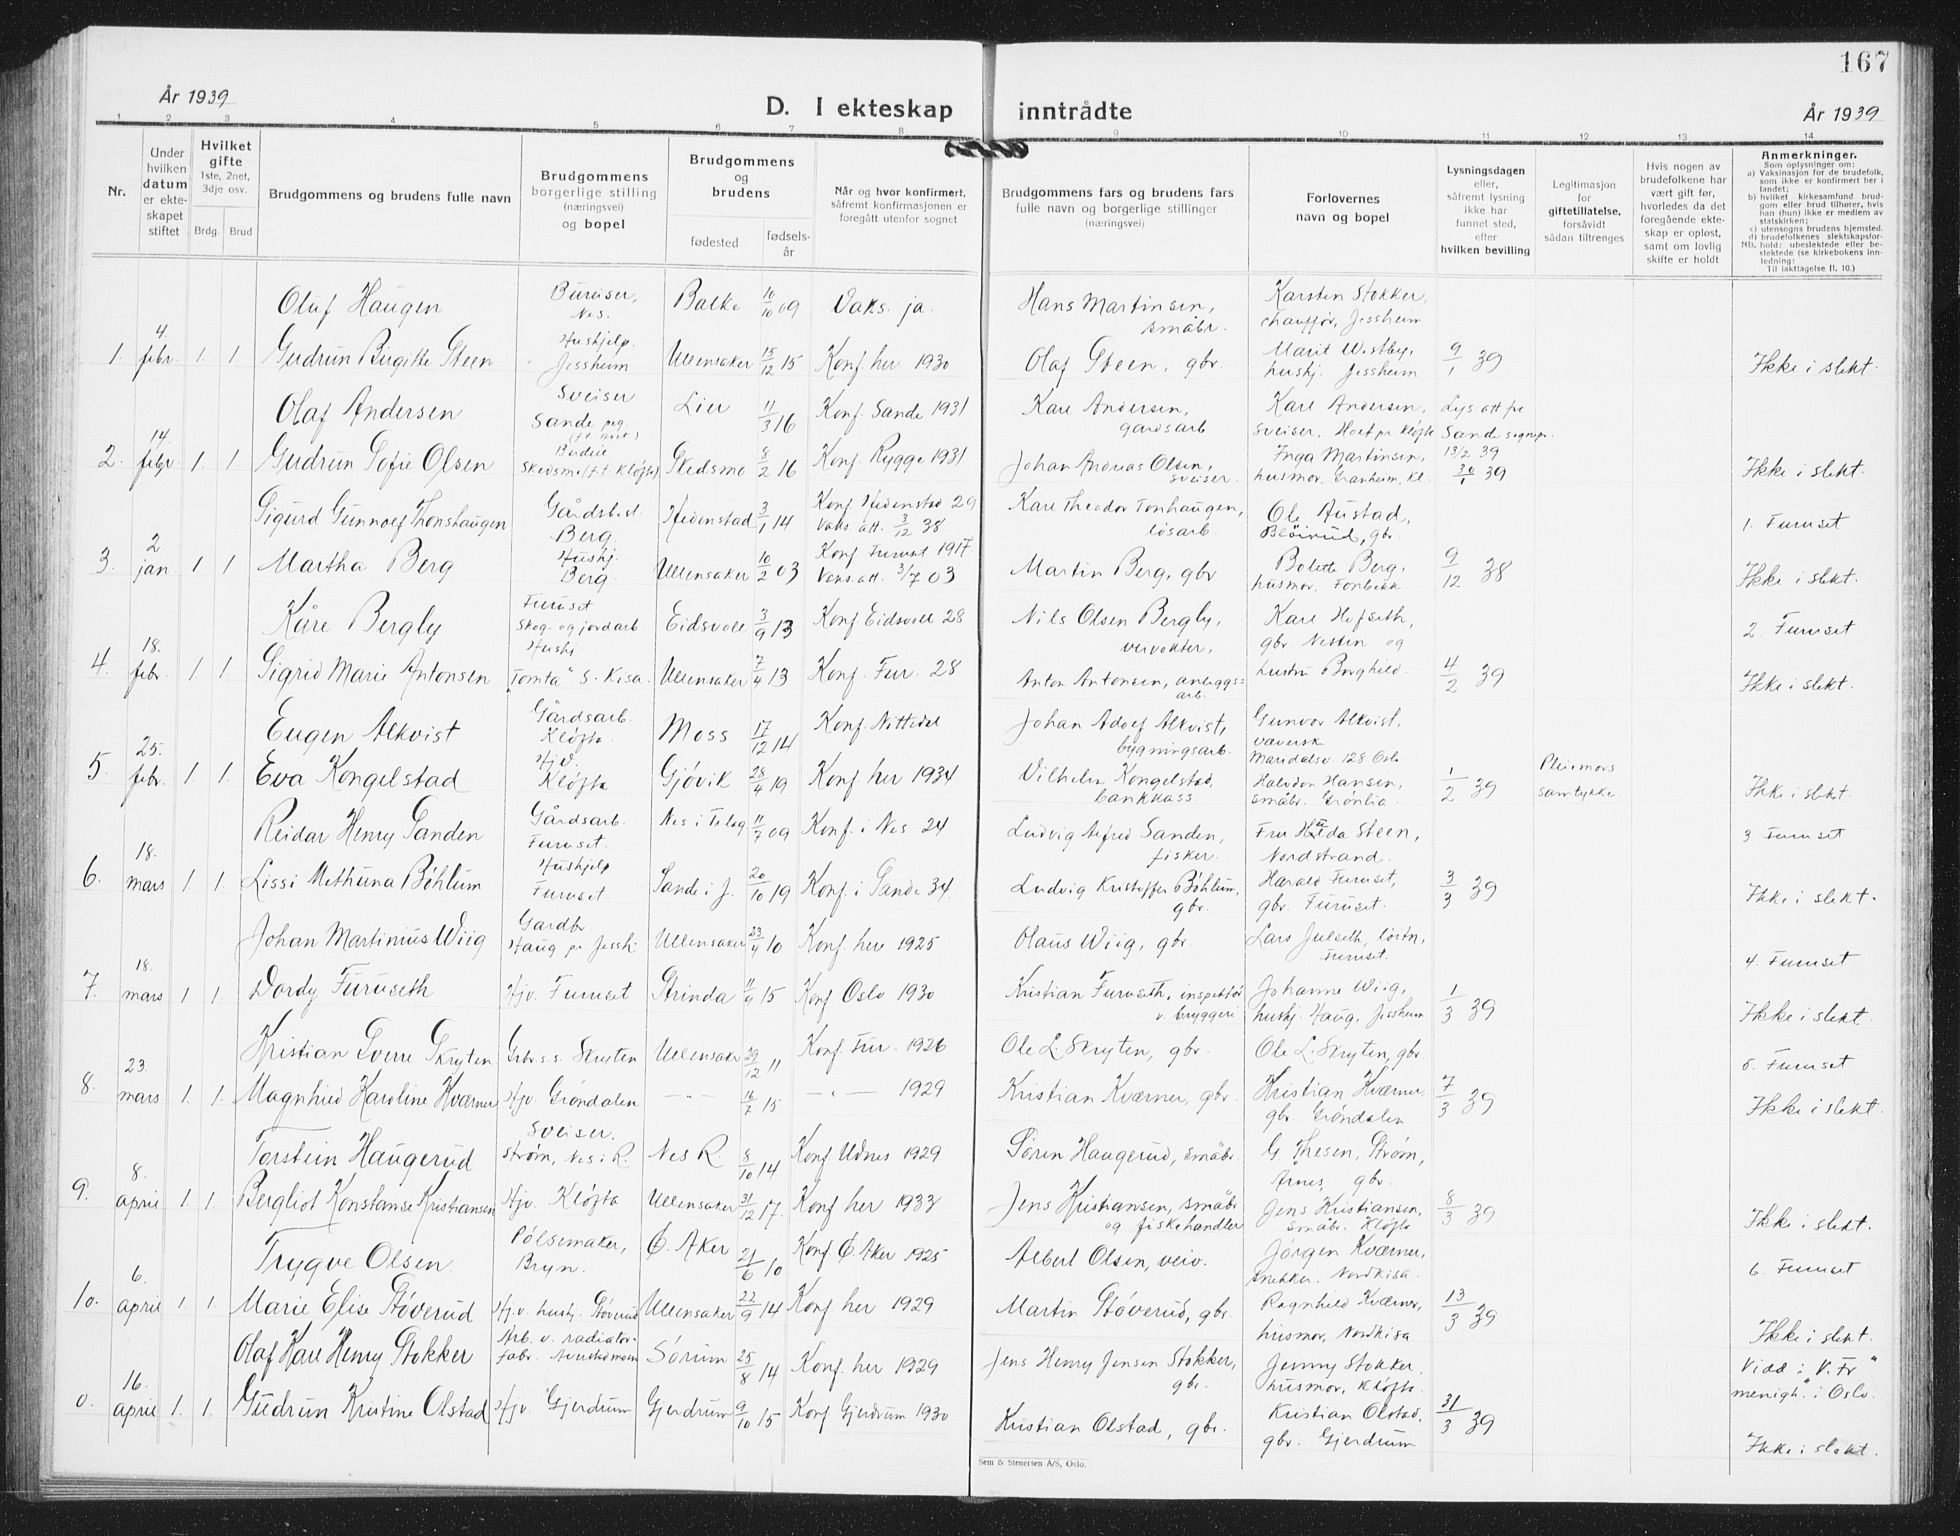 167
År 1939
D. I ekteskap inntrådte
År 1939
1 2 3 4 5 6 7 8 9 10 11 12 13 14
Nr.
Under hvilken datum er ekteskapet stiftet
Hvilket gifte 1ste, 2net, 3dje osv.
Brdg. Brud
Brudgommens og brudens fulle navn
Brudgommens borgerlige stilling (næringsvei) og bopel
Brudgommens og brudens
fødested
fødselsår
Når og hvor konfirmert, såfremt konfirmasjonen er foregått utenfor sognet
Brudgommens fars og brudens fars fulle navn og borgerlige stillinger (næringsvei)
Forlovernes navn og bopel
Lysningsdagen eller, såfremt lysning ikke har funnet sted, efter hvilken bevilling
Legitimasjon for giftetillatelse, forsåvidt sådan tiltrenges
Hvis nogen av brudefolkene har vært gift før, hvorledes da det foregående ekteskap er opløst, samt om lovlig skifte er holdt
Anmerkninger.
Som oplysninger om:
a) Vaksinasjon for de brudefolk, som ikke er konfirmert her i landet;
b) hvilket kirkesamfund brudgom eller brud tilhører, hvis han (hun) ikke er medlem av statskirken;
c) utensogns brudens hjemsted.
d) brudefolkenes slektskapsforhold: ubeslektede eller beslektede (se kirkebokens innledning:
NB. Til iakttagelse II. 10.)
Olaf Haugen Bureiser, Nes. Balke 10/10 09 Vaks. ja. Hans Martinsen, småbr. Karsten Stokker, chauffør, Jessheim
1. 4. febr. 1. 1. Gudrun Birgitte Steen Hushjelp. Jessheim Ullensaker 15/12 15 Konf. her 1930 Olaf Steen, gbr. Marit Westby, hushj. Jessheim 9/1 39 Ikke i slekt.
Olaf Andersen Sveiser Sande Lier 11/3 16 Konf. Sande 1931 Kare Andersen, gardsarb. Karl Andersen, sveiser, Lys att fra Sande sognepr. 13/2 39
2. 14. febr 1. 1. Gudrun Sofie Olsen Budeie Skedsmo (f.t. Kløfta) Skedsmo 8/2 16 Konf. Rygge 1931 Johan Andreas Olsen, sveiser. Inga Martinsen, husmor, Granheim, Kl. 30/1 39 Ikke i slekt.
Sigurd Gunnolf Thonshaugen Gårdsbest. Berg. Hedenstad 3/1 14 Konf Hedenstad 29 Vaks. att. 3/12 38 Karl Theodor Tonhaugen, løsarb Ole Austad, gbr. 1. Furuset
3. 2 jan 1 1 Martha Berg Hushj. Berg. Ullensaker 10/2 03 Konf Furuset 1917 Vaks. att. 3/7 03 Martin Berg, gbr. Bolette Berg, husmor, Fonbekk 9/12 38 Ikke i slekt.
Kåre Bergly Furuset Skog- og jordarb. Eidsvoll 3/9 13 Konf. Eidsvoll 28 Nils Olsen Bergly, veivokter, Karl Hofseth, gbr Nestin og 2. Furuset
4. 18. febr. 1. 1. Sigrid Marie Antonsen Hushj. "Tomta" S. Kisa. Ullensaker 7/4 13 Konf. Fur. 28 Anton Antonsen, anleggsarb. hustru Borghild. 4/2 39 Ikke i slekt.
Eugen Alkvist Gårdsarb. Kløfta Moss 17/12 14 Konf. Nittedal Johan Adolf Alkvist, bygningsarb. Gunvor Alkvist, væversk. Maridalsv. 128 Oslo
5. 25. febr. 1. 1. Eva Kongelstad Hjv. Kløfta Gjøvik 28/4 19 Konf her 1934 Vilhelm Kongelstad, bankkass. Halvdan Hansen, småbr. Grønlia. 1/2 39 Pleiemors samtykke. Ikke i slekt.
Reidar Henry Sanden Gårdsarb. Furuset. 11/7 09 Konf. i Nes 24 Ludvig Alfred Sanden, fisker. Fru Steen, Nordstrand. 3. Furuset
6. 18. mars 1 1. Lissi Methuna Bøhlum Hushjelp Furuset. Sande i J. 20/10 19 Konf. i Sande 34. Ludvig Kristoffer Bøhlum, gbr. Harald Furuset, gbr. Furuset. 3/3 39 Ikke i slekt.
Johan Martinius Wiig Gardbr. Haug pr. Jessh. Ullensaker 23/4 10 Konf. her 1925 Olaus Wiig, gbr. Lars Julseth, løitn, Furuset. 4. Furuset
7. 18. mars 1 1. Dordy Furuseth Hjv. Furuset Strinda 11/9 15 Konf Oslo 1930 Kristian Furuseth, inspektør v. bryggeri Johanne Wiig, hushj. Haug, Jessheim 1/3 39 Ikke i slekt.
Kristian Sverre Skryten Grbr. s.s. Skryten Ullensaker 29/12 11 Konf. Fur. 1926 Ole L. Skryten, gbr. Ole L. Skryten, gbr 5. Furuset
8. 23. mars 1 1. Magnhild Karoline Kværner Hjv. Grøndalen — " — 16/7 15 — " — 1929 Kristian Kværner, gbr. Kristian Kværner, gbr. Grøndalen 7/3 39 Ikke i slekt.
Torstein Haugerud Sveiser. Strøm, Nes i R. Nes R. 8/10 14 Konf Udnes 1929 Søren Haugerud, småbr. G. Thesen, Strøm, Årnes, gbr.
9. 8. april 1. 1. Bergliot Konstanse Kristiansen Hjv. Kløfta Ullensaker 31/12 17. Konf her 1933 Jens Kristiansen, småbr og fiskehandler Jens Kristiansen, småbr. Kløfta 8/3 39 Ikke i slekt.
Trygve Olsen Pølsemaker, Bryn. Ø. Aker 21/6 10 Konf Ø Aker 1925 Albert Olsen, veiv. Jørgen Kværner, snekker. Nordkisa. 6. Furuset
10. 6. april 1. 1. Marie Elise Støverud Hjv. hushj. Støverud Ullensaker 22/9 14 Konf her 1929 Martin Støverud, gbr. Ragnhild Kværner, husmor, Nordkisa 13/3 39 Ikke i slekt.
Olaf Kare Henry Stokker Arb. v. radiatorfabr. Sørum 25/8 14 Konf. her 1929 Jens Henry Jensen Stokker, gbr. Jenny Stokker husmor, Kløfta. Vidd i "V. Fr menigh." i Oslo.
0. 16. april 1. 1. Gudrun Kristine Olstad Hjv. Gjerdrum Gjerdrum 9/10 15 Konf Gjerdrum 1930 Kristian Olstad, gbr. Kristian Olstad, gbr. Gjerdrum 31/3 39 Ikke i slekt.
Sem & Stenersen A/S, Oslo.